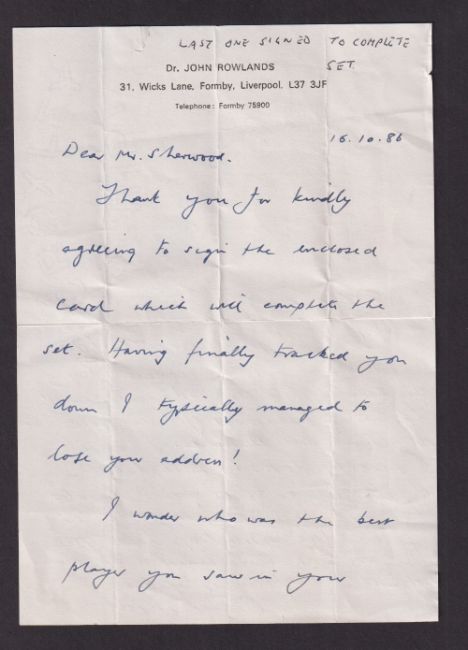 LAST ONE SIGNED TO COMPLETE
SET.
Dr. JOHN ROWLANDS
31, Wicks Lane, Formby, Liverpool, L37 3JF
Telephone: Formby 75900
16.10.86
Dear Mr. Sherwood.
Thank you for kindly
agreeing to sign the enclosed
card which will complete the
set. Having finally tracked you
down I typically managed to
lose your address!
I wonder who was the best
player you saw in your